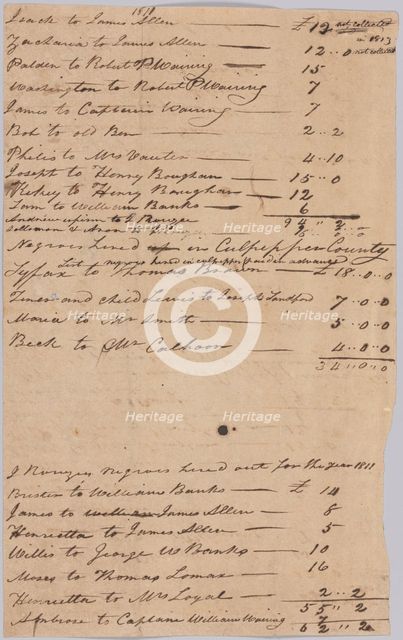 1810
Isack to James Allen — £ 12 not collected
in 1813
Zacharia to James Allen — 12 .. 0 not collected
Palden to Robert P Waring — 15
Washington to Robert P Waring 7
James to Captain Waring — 7
Bob to old Ben — 2 .. 2
Philis to Mrs Vauter — 4 .. 10
Joseph to Henry Boughan — 15 .. 0
to Henry Boughan — 12
Tom to William Banks — 6
Andrew to J
94 .. 2
Solloman &
Negroes hired in Culpepper County
List negroes hired in culpepper paid in advance
Syfax to Thomas — £ 18 .. 0 .. 0
and child Lewis to Joseph Sandford 7 .. 0 .. 0
Maria to Smith — 5 .. 0 .. 0
Beck to Mr Calhoon — 4 .. 0 .. 0
34 .. 0 .. 0
J negroes hired out for the year 1811
Brister to William Banks — £ 14
James to James Allen — 8
Henrietta to James Allen — 5
Willis to George W Banks — 10
Moses to Thomas Lomax — 16
Henrietta to Mrs Loyal — 2 .. 2
55 .. 2
Ambrose to Captane William Waring 7
62 .. 2
Heritage
Heritage
Heritage
Heritage
Heritage
Heritage
Heritage
Heritage
C